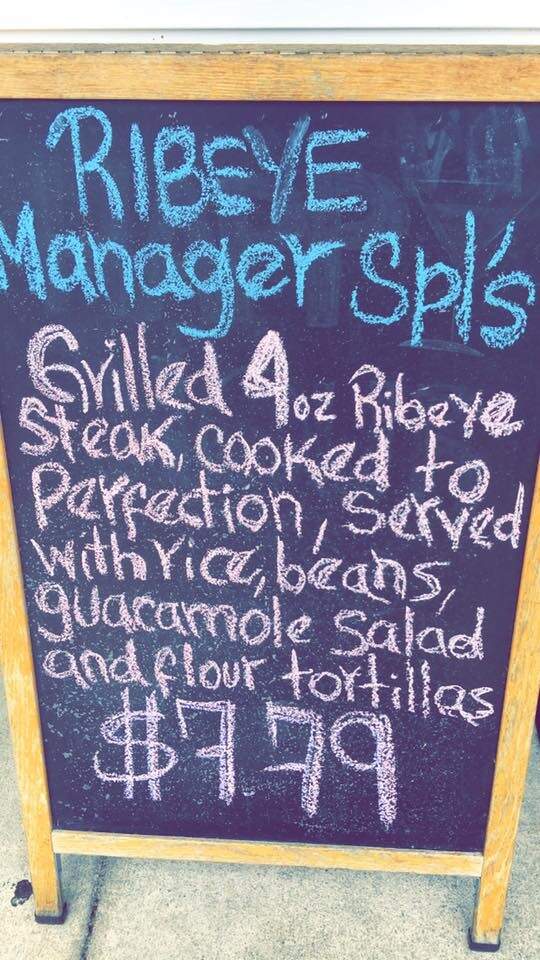 RIBEYE
Manager Spl's
Grilled 4oz Ribeye
Steak, cooked to
Perfection, Served
with rice, beans,
guacamole Salad
and flour tortillas
$7.79